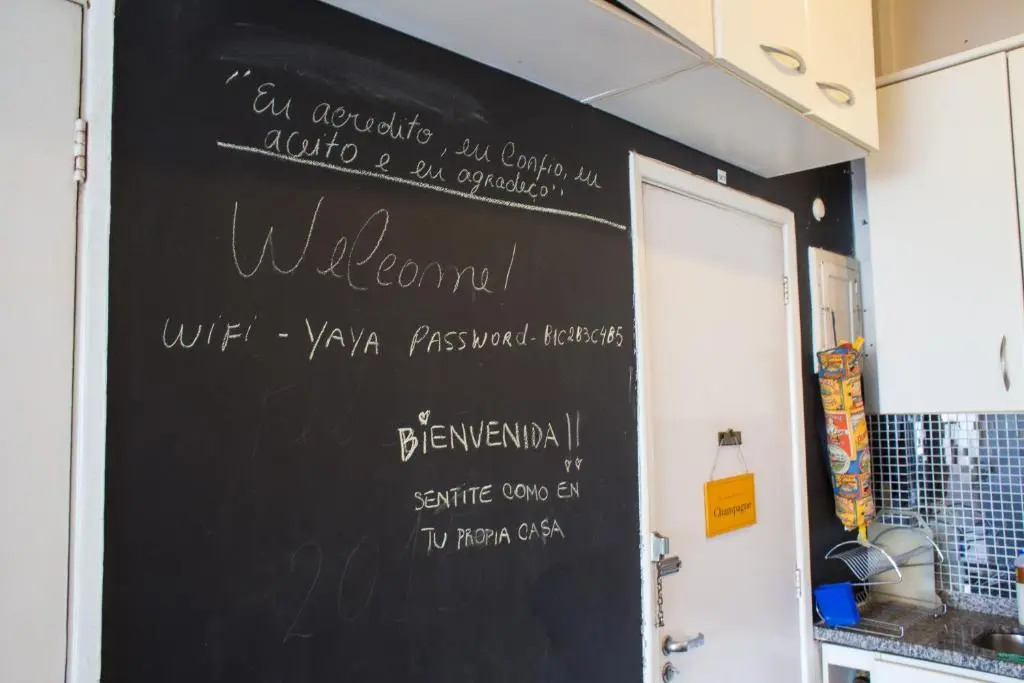 "Eu acredito, eu confio, eu
aceito e eu agradeço"
Welcome!
WiFi - YAYA PASSWORD - B1C2B3C4B5
BiENVENIDA!!
SENTITE COMO EN
TU PROPIA CASA
Champagne